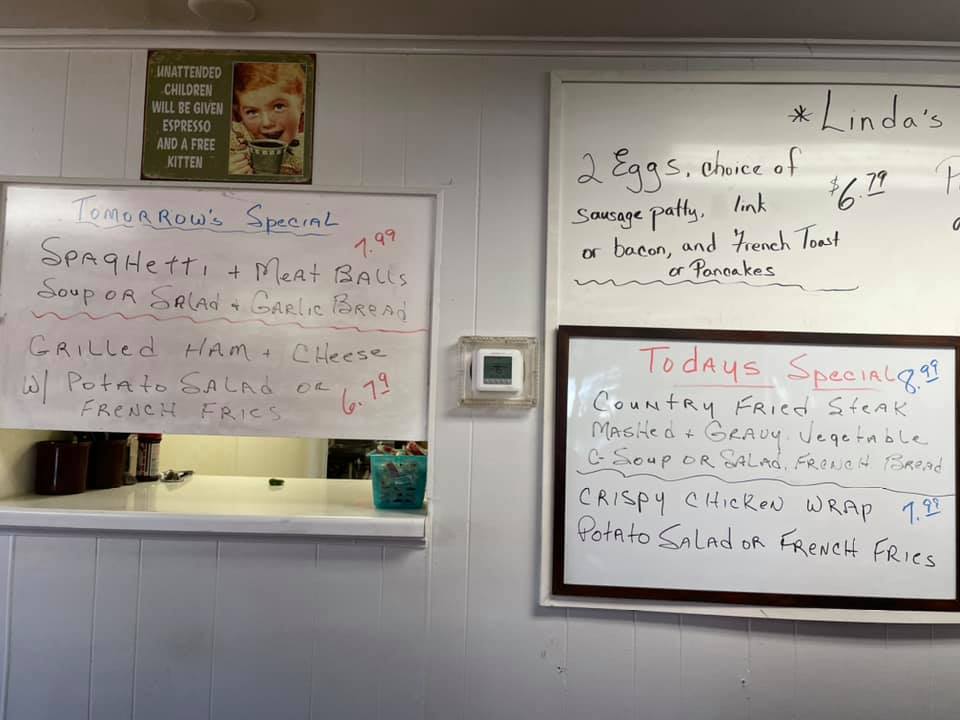 UNATTENDED
CHILDREN
WILL BE GIVEN
ESPRESSO
AND A FREE
KITTEN
TOMORROW'S SPECIAL
7.99
SPAGHETTI + MEAT BALLS
SOUP OR SALAD + GARLIC BREAD
GRILLED HAM + CHEESE
W/ POTATO SALAD OR 6.79
FRENCH FRIES
* Linda's
2 Eggs, choice of $6.79
sausage patty, link
or bacon, and French Toast
or Pancakes
Todays Special 8.99
COUNTRY FRIED STEAK
MASHED + GRAVY. Vegetable
C- SOUP OR SALAD, FRENCH BREAD
CRISPY CHICKEN WRAP 7.99
POTATO SALAD OR FRENCH FRIES